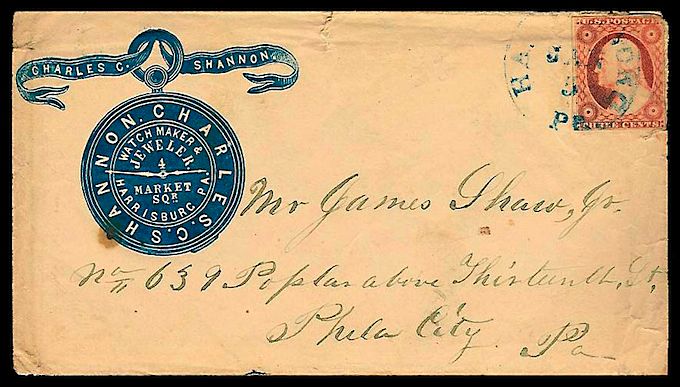 CHARLES C. SHANNON
CHARLES C. SHANNON.
WATCH MAKER &
JEWELER.
4
MARKET
SQR
HARRISBURG PA.
U.S. POSTAGE
THREE CENTS
PA
Mr James Shaw, Jr.
No 639 Poplar above Thirteenth St.
Phila City
Pa